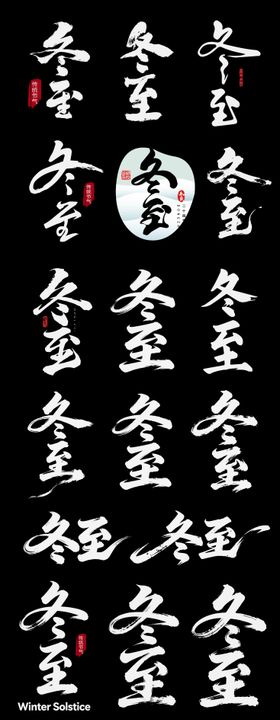 冬至
传统节气
冬至
冬至
冬至
传统节气
冬至
冬至
冬至
冬至
冬至
冬至
冬至
冬至
冬至
冬至
冬至
传统节气
冬至
冬至
Winter Solstice